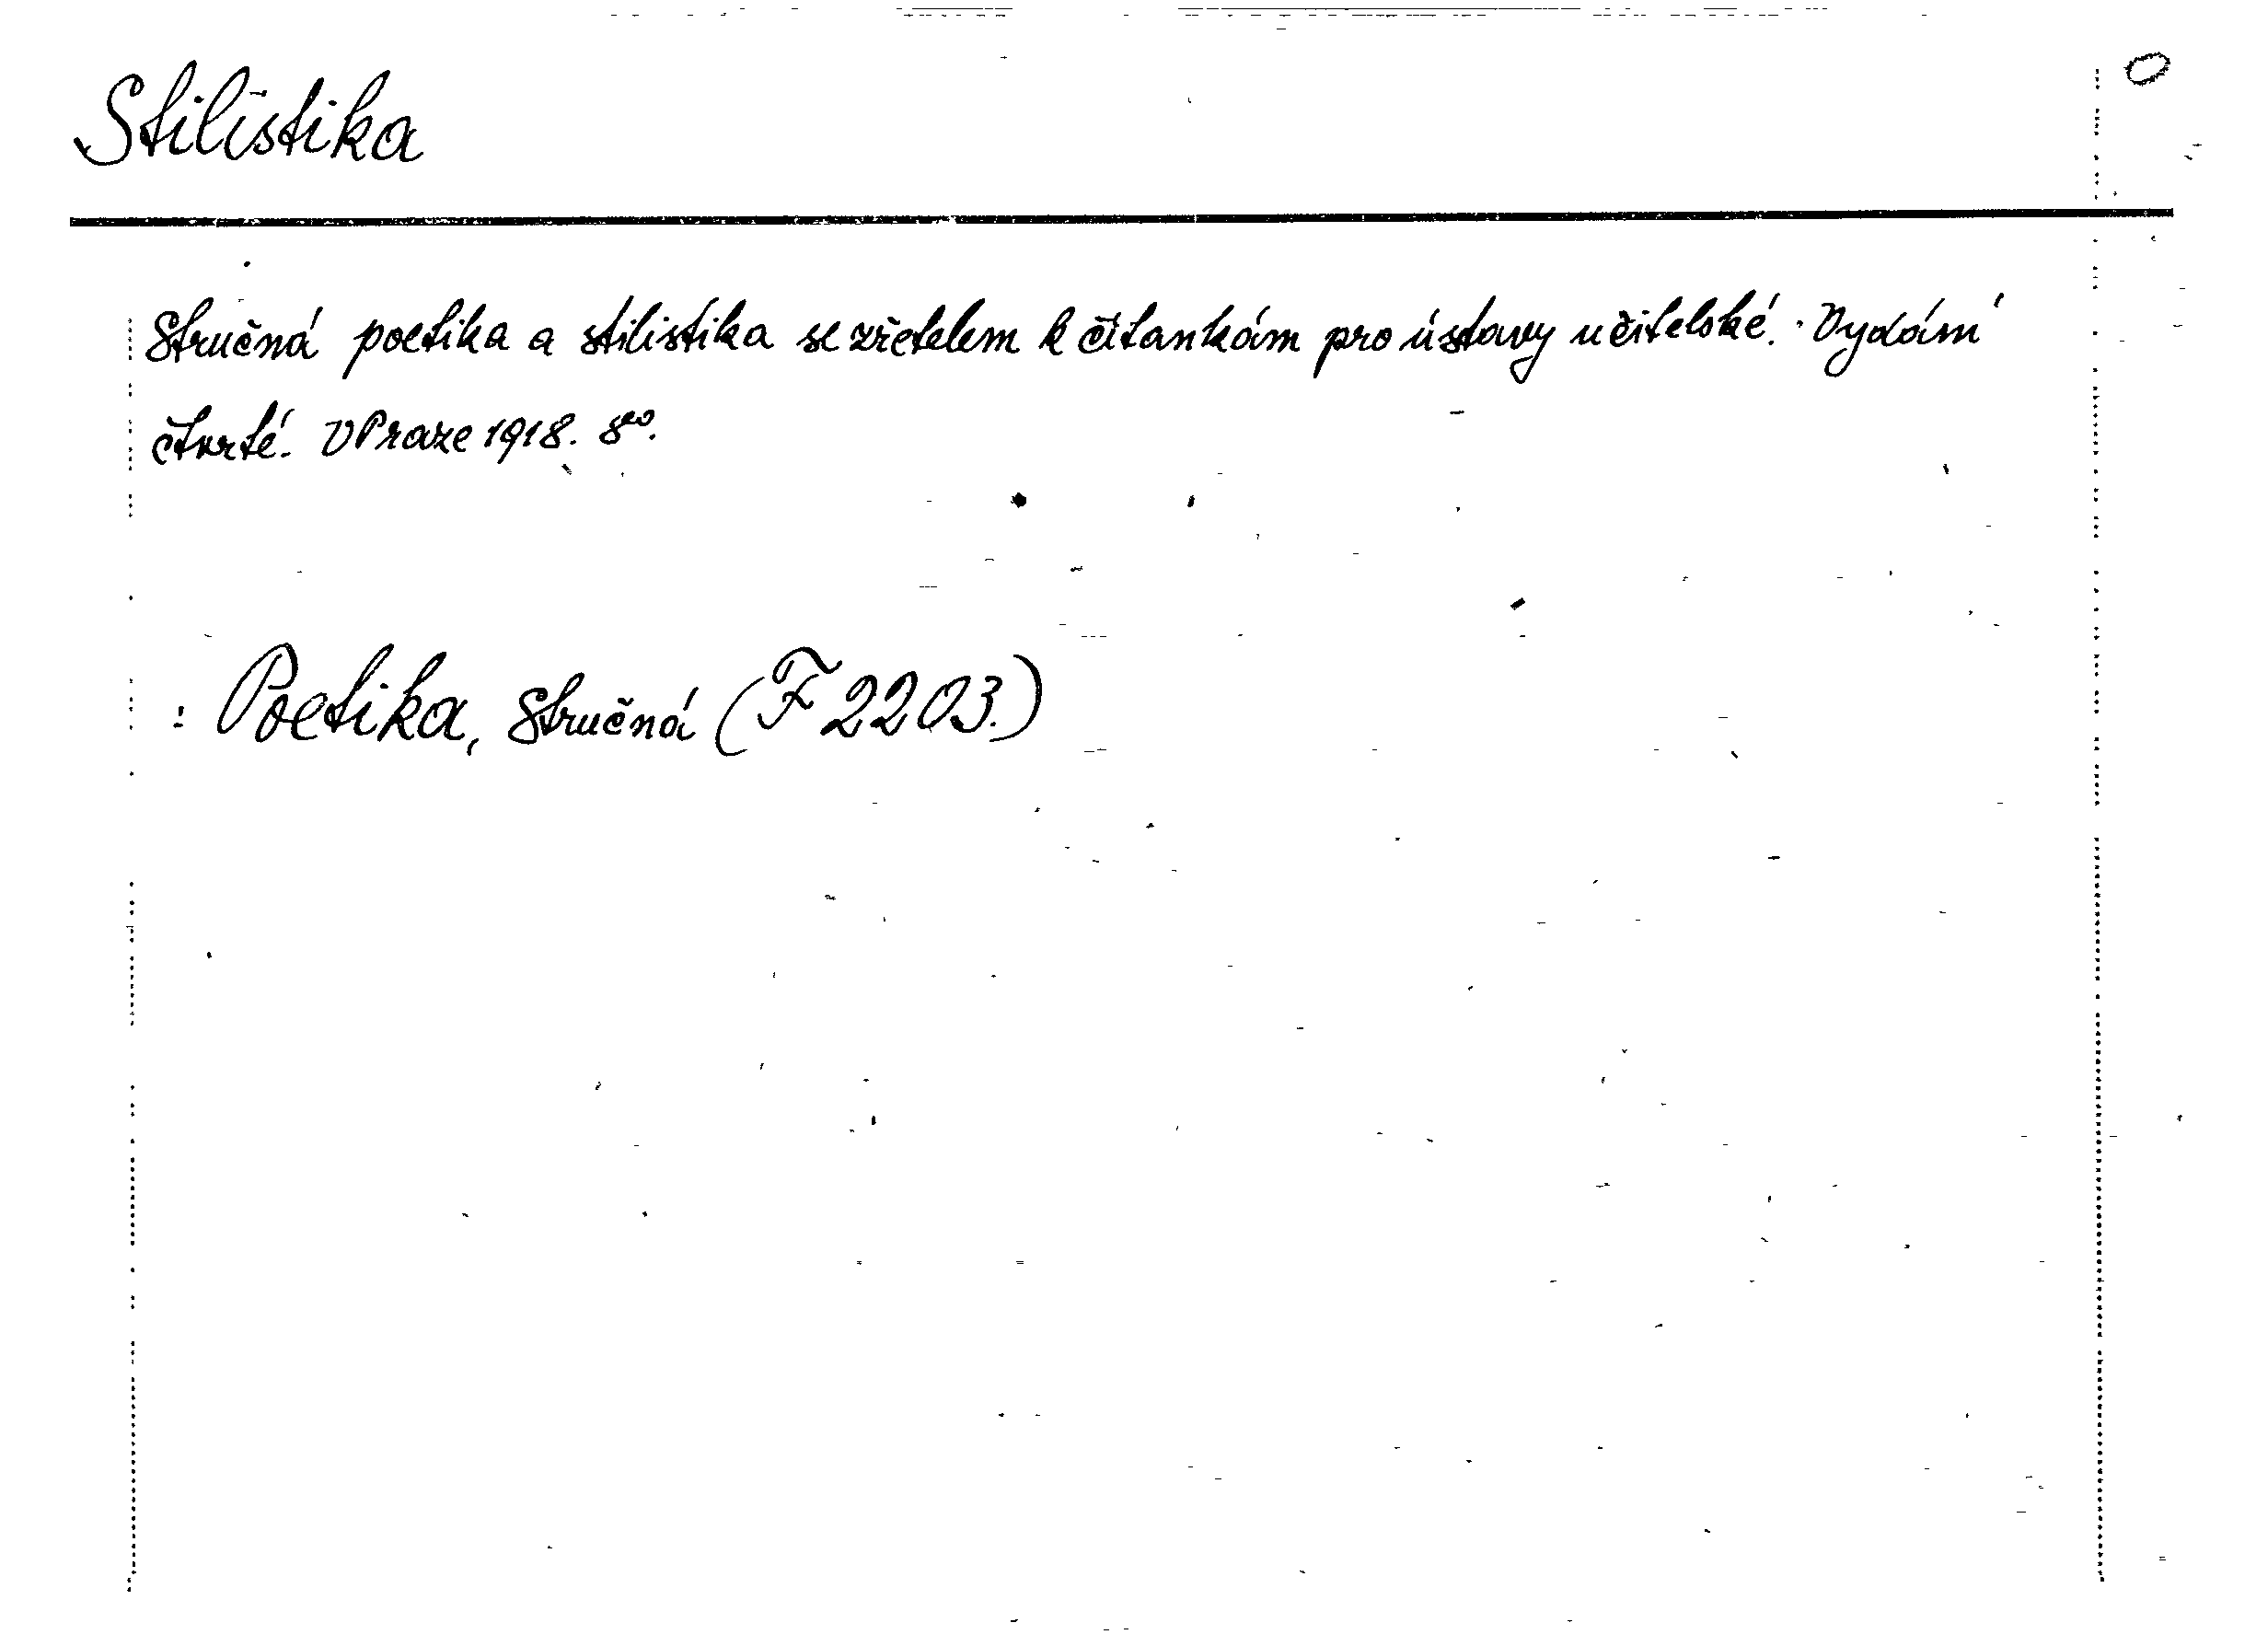 Stilistika
Stručná poetika a stilistika se zřetelem k čítankám pro ústavy učitelské. Vydání
čtvrté. V Praze 1918. 8⁰.
: Poetika, Stručná (F 2203.)